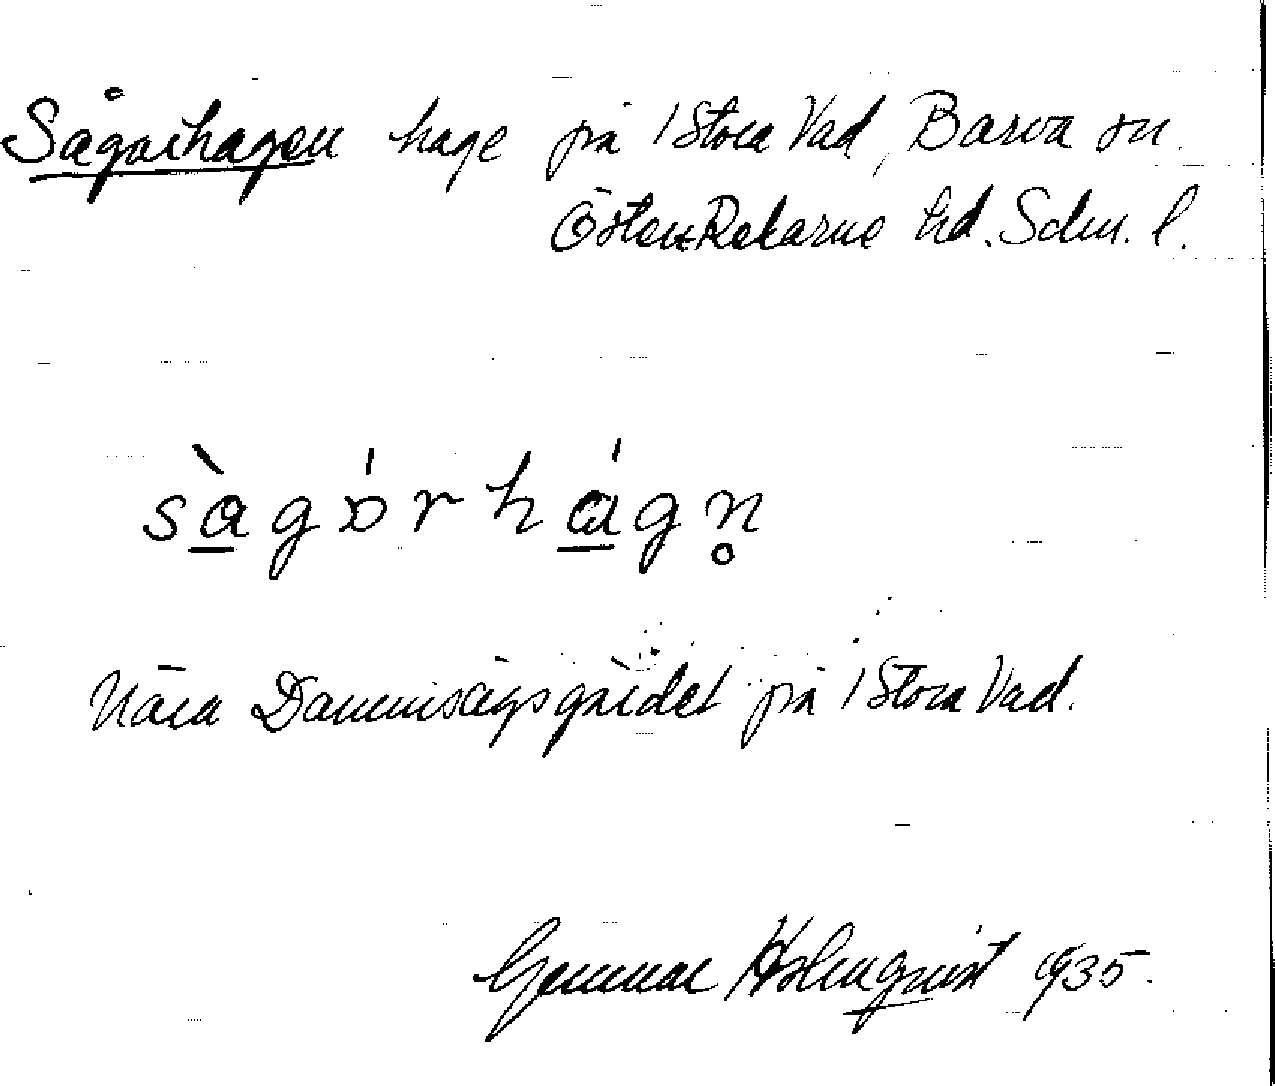 Sågarhagen hage på 1 Stora Vad, Barva sn.
Österrekarne hd. Sdm. l.
sàgórhágn̥
Nära Dammsågsgärdet på 1 Stora Vad.
Gunnar Holmquist 1935.